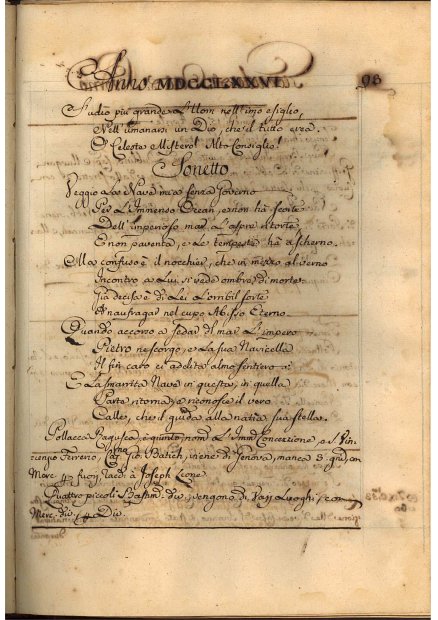 Anno MDCCLXXVI 96
Studio più grande L'Uom nell'imo esiglio,
Nell'umanarsi un Dio, che il tutto crea.
O Celeste Mistero! Alto Consiglio!
Sonetto
Veggio a los Nave mia senza Governo
Per L'Immenso Ocean, e non ha scorte
Dell'imperioso mar L'aspre ritorte
E non paventa, e Le tempeste ha a scherno.
Ma confuso è il nocchier, che in mezzo al verno
Incontro a Lui si vede ombre di morte
Già decisa è di Lei L'orribil sorte
A naufragar nel cupo Abisso Eterno.
Quando accorso a sedar di mar L'impero
Pietro ne scorgo, e La sua Navicella
Il fin caro ci addita almo sentiero
E La smarrita Nave in questa, in quella
Parte ritorna, e riconosce il vero
Calle, che il guida alla natia sua stella.
Pollacca Ragusea è giunta, nom. L'Imm. Concezione, e S. Vin
cenzo Ferrerio, Cap. Gio Batich, viene di Genova, manca 8. gni, con
Merc. fuori, racc. à Joseph Leone
Quattro piccoli Bastim. div. vengono di Varj Luoghi, con
Merc. div.